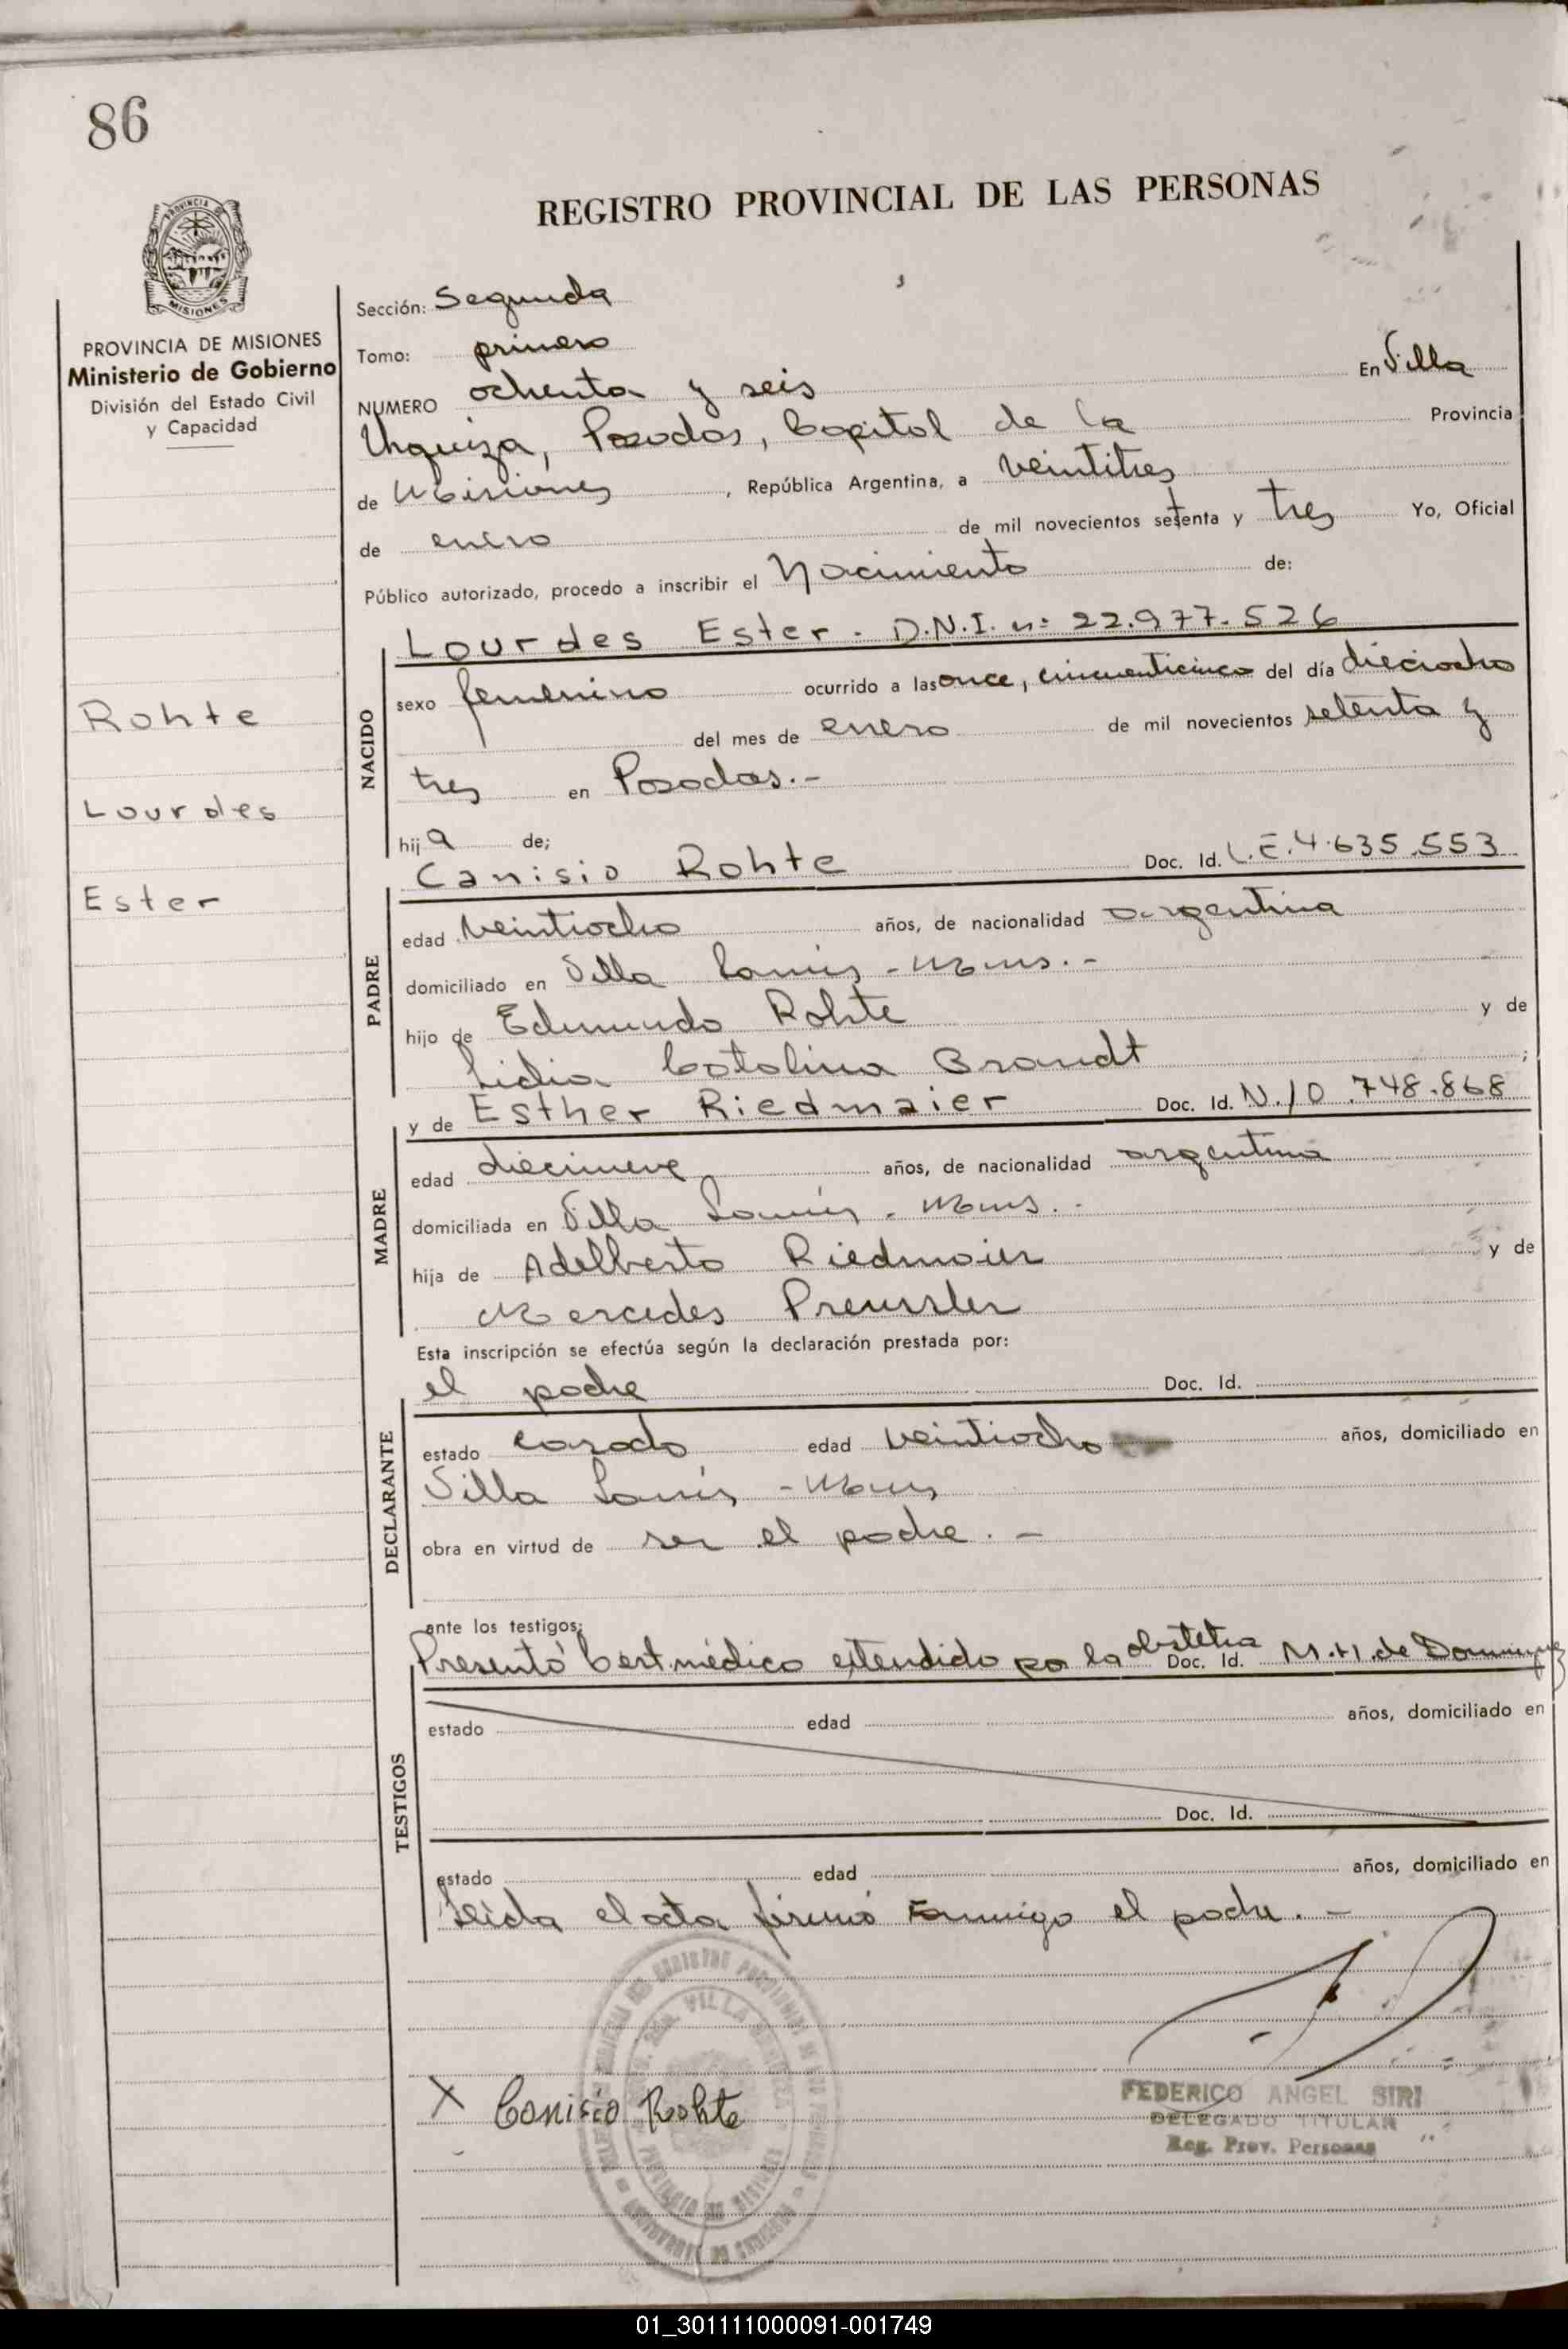 86
REGISTRO PROVINCIAL DE LAS PERSONAS
PROVINCIA DE MISIONES
Ministerio de Gobierno
División del Estado Civil
y Capacidad
Rohte
Lourdes
Ester
Sección: Segunda
Tomo: primero
NUMERO ochenta y seis En Villa
Urquiza, Posadas, Capital de la Provincia
de Misiones, República Argentina, a veintitres
de enero de mil novecientos setenta y tres Yo, Oficial
Público autorizado, procedo a inscribir el Nacimiento de:
Lourdes Ester. D.N.I. nº 22.977.526
NACIDO
sexo femenino ocurrido a las once, cincuenticinco del día dieciocho
del mes de enero de mil novecientos setenta y
tres en Posadas.-
hija de;
Canisio Rohte Doc. Id. L.E.4.635.553
PADRE
edad veintiocho años, de nacionalidad argentina
domiciliado en Villa Lanús - Mnes.-
hijo de Edmundo Rohte y de
Lidia Catalina Brandt ;
y de Esther Riedmaier Doc. Id. N./0.748.868
MADRE
edad diecinueve años, de nacionalidad argentina
domiciliada en Villa Lanús - Mnes.-
hija de Adelberto Riedmaier y de
Mercedes Preussler
Esta inscripción se efectúa según la declaración prestada por:
el padre Doc. Id.
DECLARANTE
estado casado edad veintiocho años, domiciliado en
Villa Lanús - Mnes
obra en virtud de ser el padre.-
ante los testigos;
Presentó Cert.médico extendido por la obstetra Doc. Id. M.H.de Dominguez
TESTIGOS
estado edad años, domiciliado en
Doc. Id.
estado edad años, domiciliado en
Leida el acta firmó conmigo el padre.-
X Canisio Rohte
FEDERICO ANGEL SIRI
DELEGADO TITULAR
Reg. Prov. Personas
01_301111000091-001749